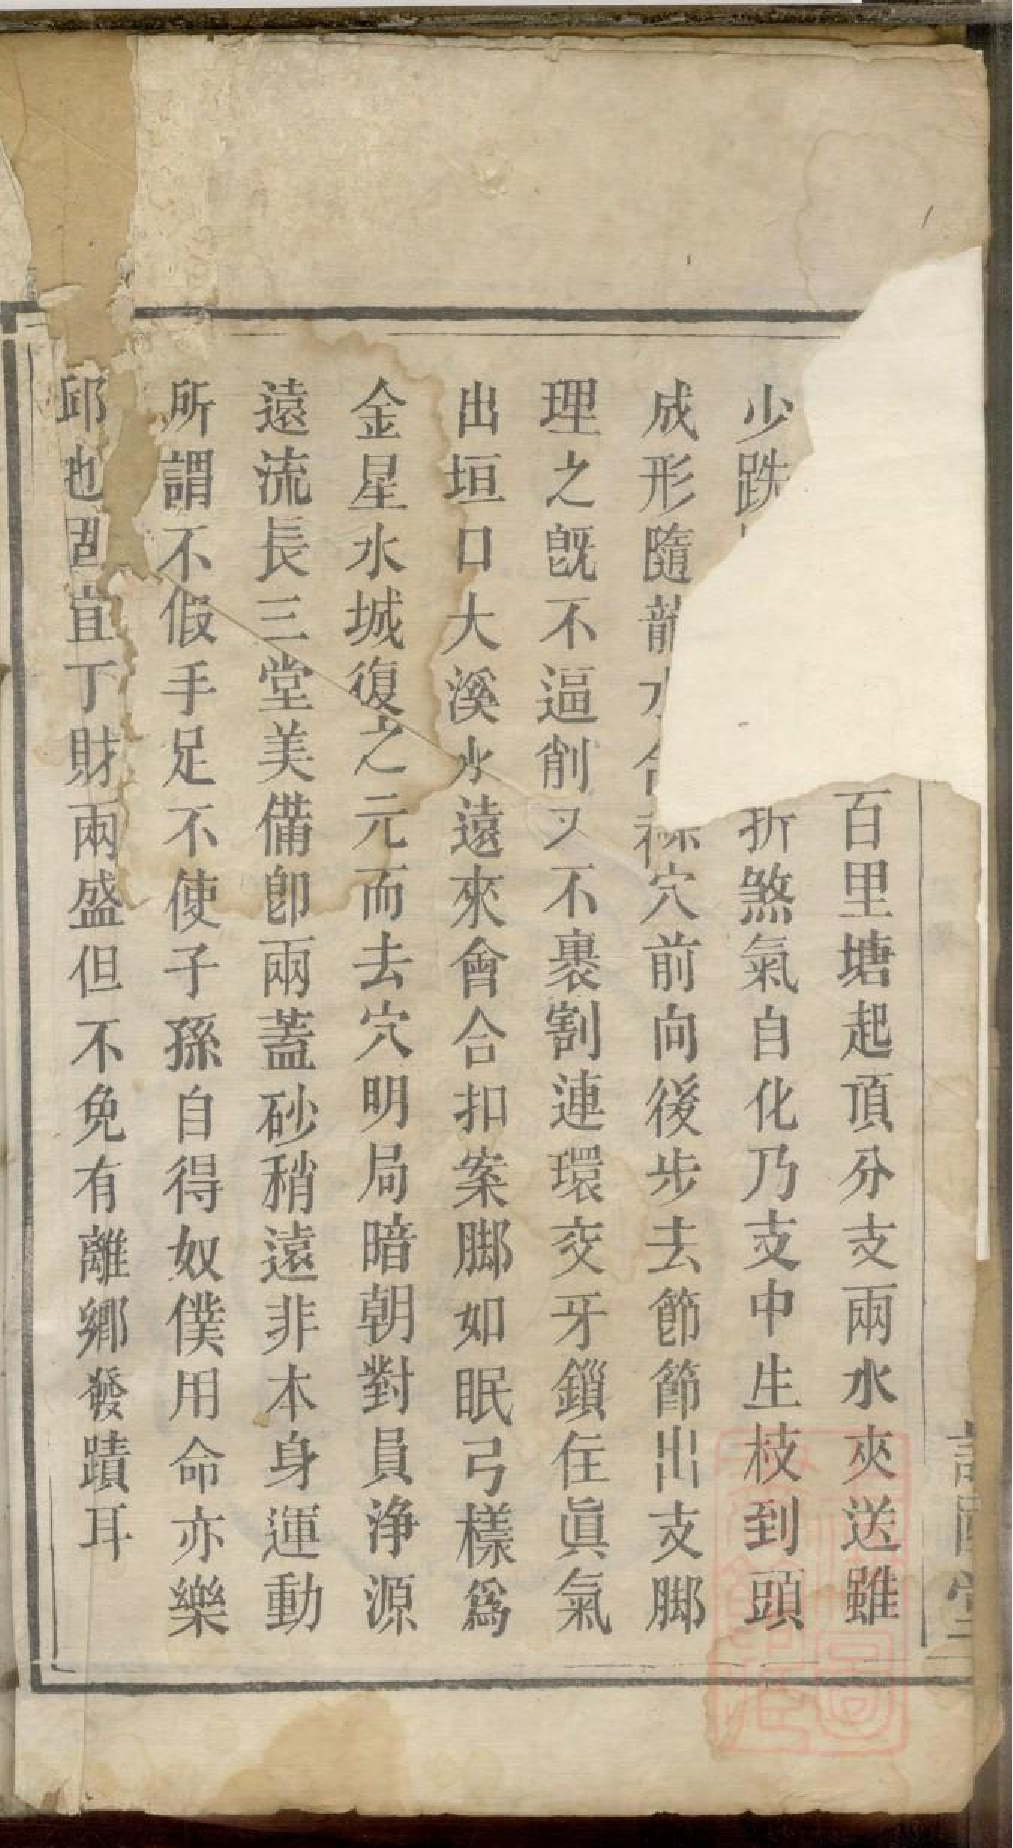 百里塘起頂分支兩水夾送雖
少跌折煞氣自化乃支中生枝到頭
成形隨龍水合襟穴前向後步去節節出支脚
理之旣不逼削又不裹割連環交牙鎖住眞氣
出垣口大溪水遠來會合扣案脚如眠弓樣爲
金星水城復之元而去穴明局暗朝對員浄源
遠流長三堂美備卽兩蓋砂稍遠非本身運動
所謂不假手足不使子孫自得奴僕用命亦樂
邱也固宜丁財兩盛但不免有離鄉發蹟耳